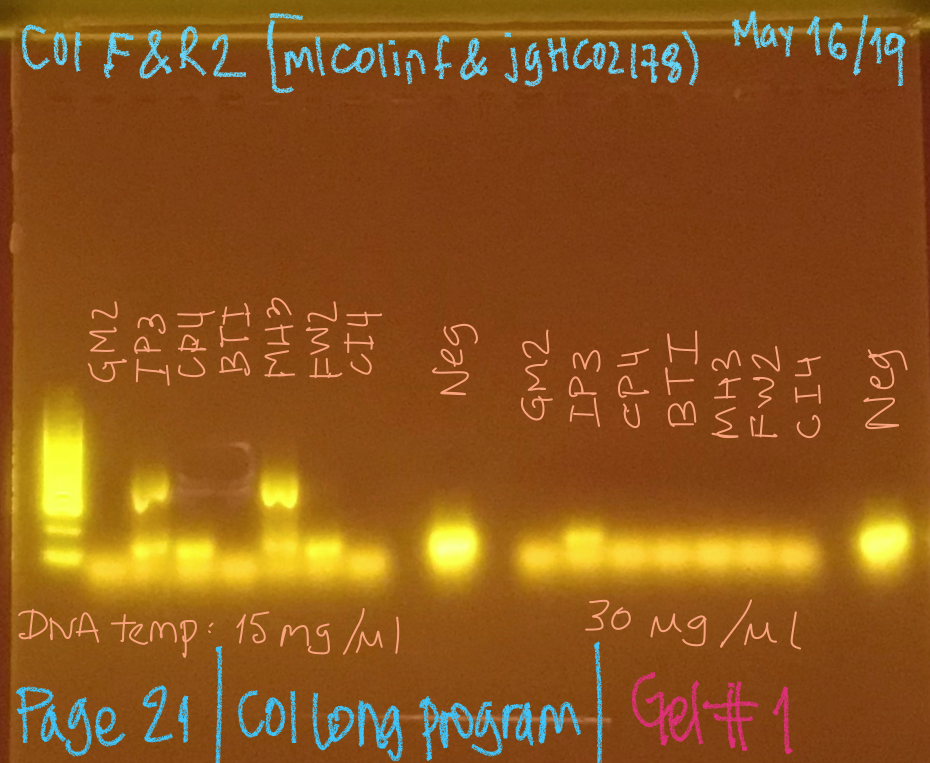 COI F&R2 [mlCOIinf & jgHCO2178) May 16/19
GM2 IP3 CP4 BTI MH3 FW2 CI4 Neg GM2 IP3 CP4 BTI MH3 FW2 CI4 Neg
DNA temp: 15 mg/μl 30 μg/μl
Page 21 | COI long program | Gel# 1